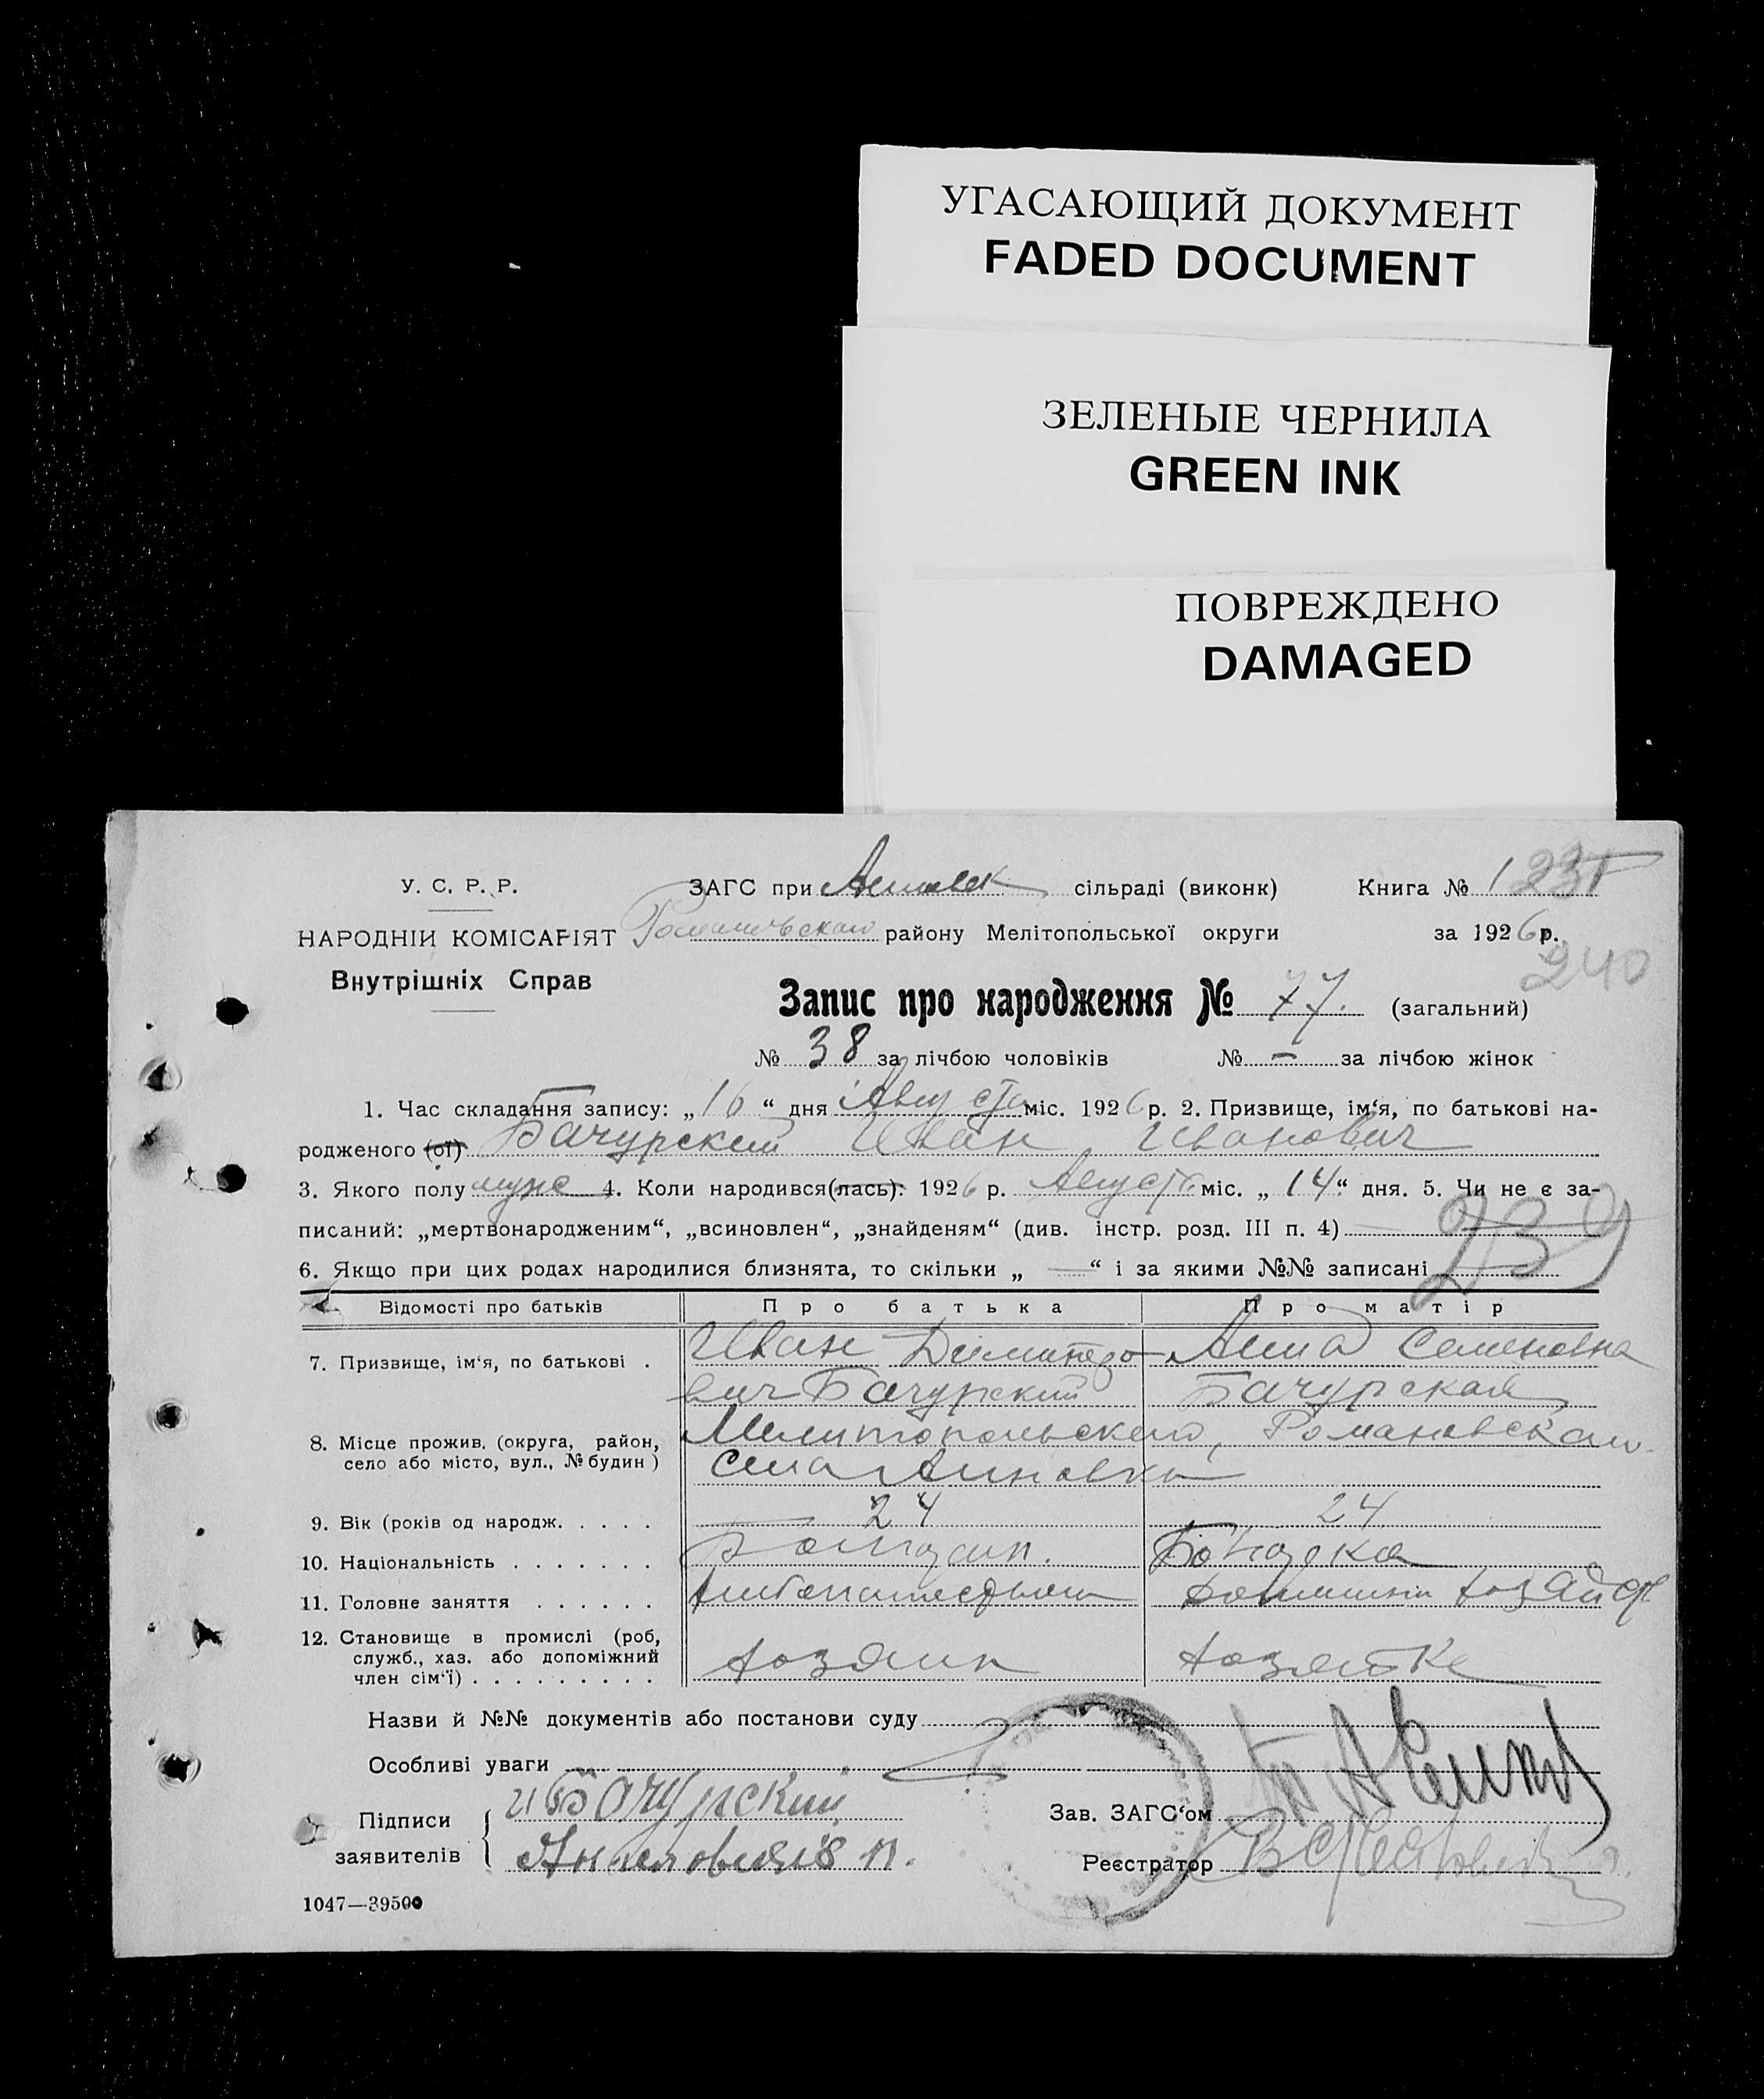 УГАСАЮЩИЙ ДОКУМЕНТ
FADED DOCUMENT
ЗЕЛЕНЫЕ ЧЕРНИЛА
GREEN INK
ПОВРЕЖДЕНО
DAMAGED
У. С. Р. Р.
ЗАГС при сільраді (виконк)
Книга № 1
НАРОДНІИ КОМІСАРІЯТ
району Мелітопольської округи
за 1926 р.
240
Внутрішніх Справ
Запис про народження № 77. (загальний)
№ 38 за лічбою чоловіків № – за лічбою жінок
1. Час складання запису: „16“ дня Августа міс. 1926 р. 2. Призвище, ім‘я, по батькові на-
родженого (ої) Бачурский Иван Иванович
3. Якого полу муж 4. Коли народився(лась). 1926 р. Август міс. „14“ дня. 5. Чи не є за-
писаний: „мертвонародженим“, „всиновлен“, „знайденям“ (див. інстр. розд. III п. 4)
239
6. Якщо при цих родах народилися близнята, то скільки „ — “ і за якими №№ записані
Відомості про батьків Про батька Про матір
7. Призвище, ім‘я, по батькові . Иван Димитро Анна Семеновна
вич Бачурский Бачурская
8. Місце прожив. (округа, район, Мелитопольского, Романовского
село або місто, вул., № будин) Села
9. Вік (років од народж. . . . . 24 24
10. Національність . . . . . . .
11. Головне заняття . . . . . .
12. Становище в промислі (роб,
служб., хаз. або допоміжний хозяин
член сім‘ї) . . . . . . . . .
Назви й №№ документів або постанови суду
Особливі уваги
Підписи И Бачурский
заявителів
Зав. ЗАГС‘ом
Реєстратор
1047—39500